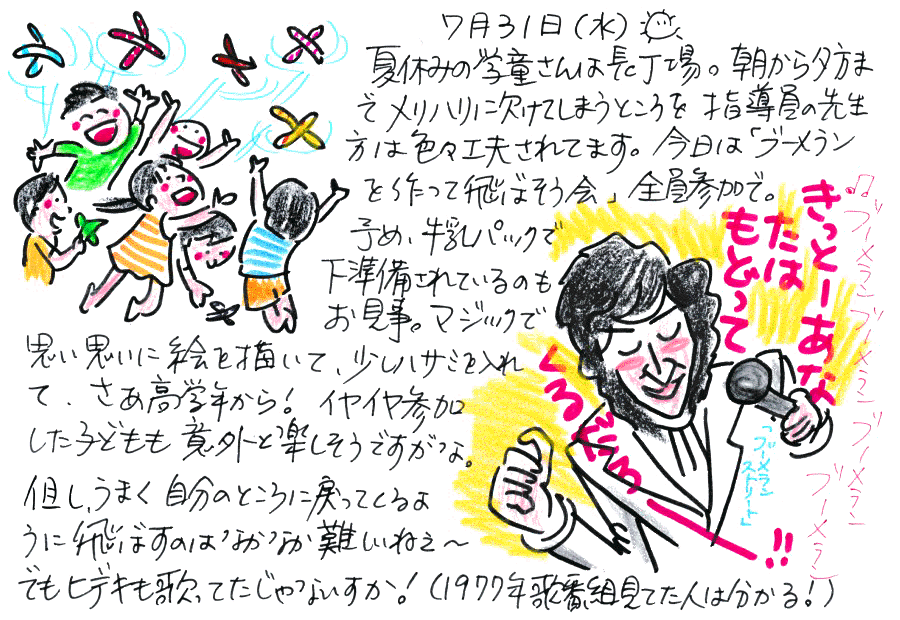 7月31日(水)
夏休みの学童さんは長丁場。朝から夕方ま
でメリハリに欠けてしまうところを指導員の先生
方は色々工夫されてます。今日は「ブーメラン
を作って飛ばそう会」全員参加で。
予め、牛乳パックで
下準備されているのも
お見事。マジックで
思い思いに絵を描いて、少しハサミを入れ
て、さあ高学年から!イヤイヤ参加
した子どもも意外と楽しそうですがな。
但し、うまく自分のところに戻ってくるよ
うに飛ばすのはなかなか難しいねぇ～
でもヒデキも歌ってたじゃないすか!(1977年歌番組見てた人は分かる!)
♫ブーメランブーメランブーメランブーメラン
きっとーあな
たは
もどって
くるだろー!!
「ブーメラン
ストリート」